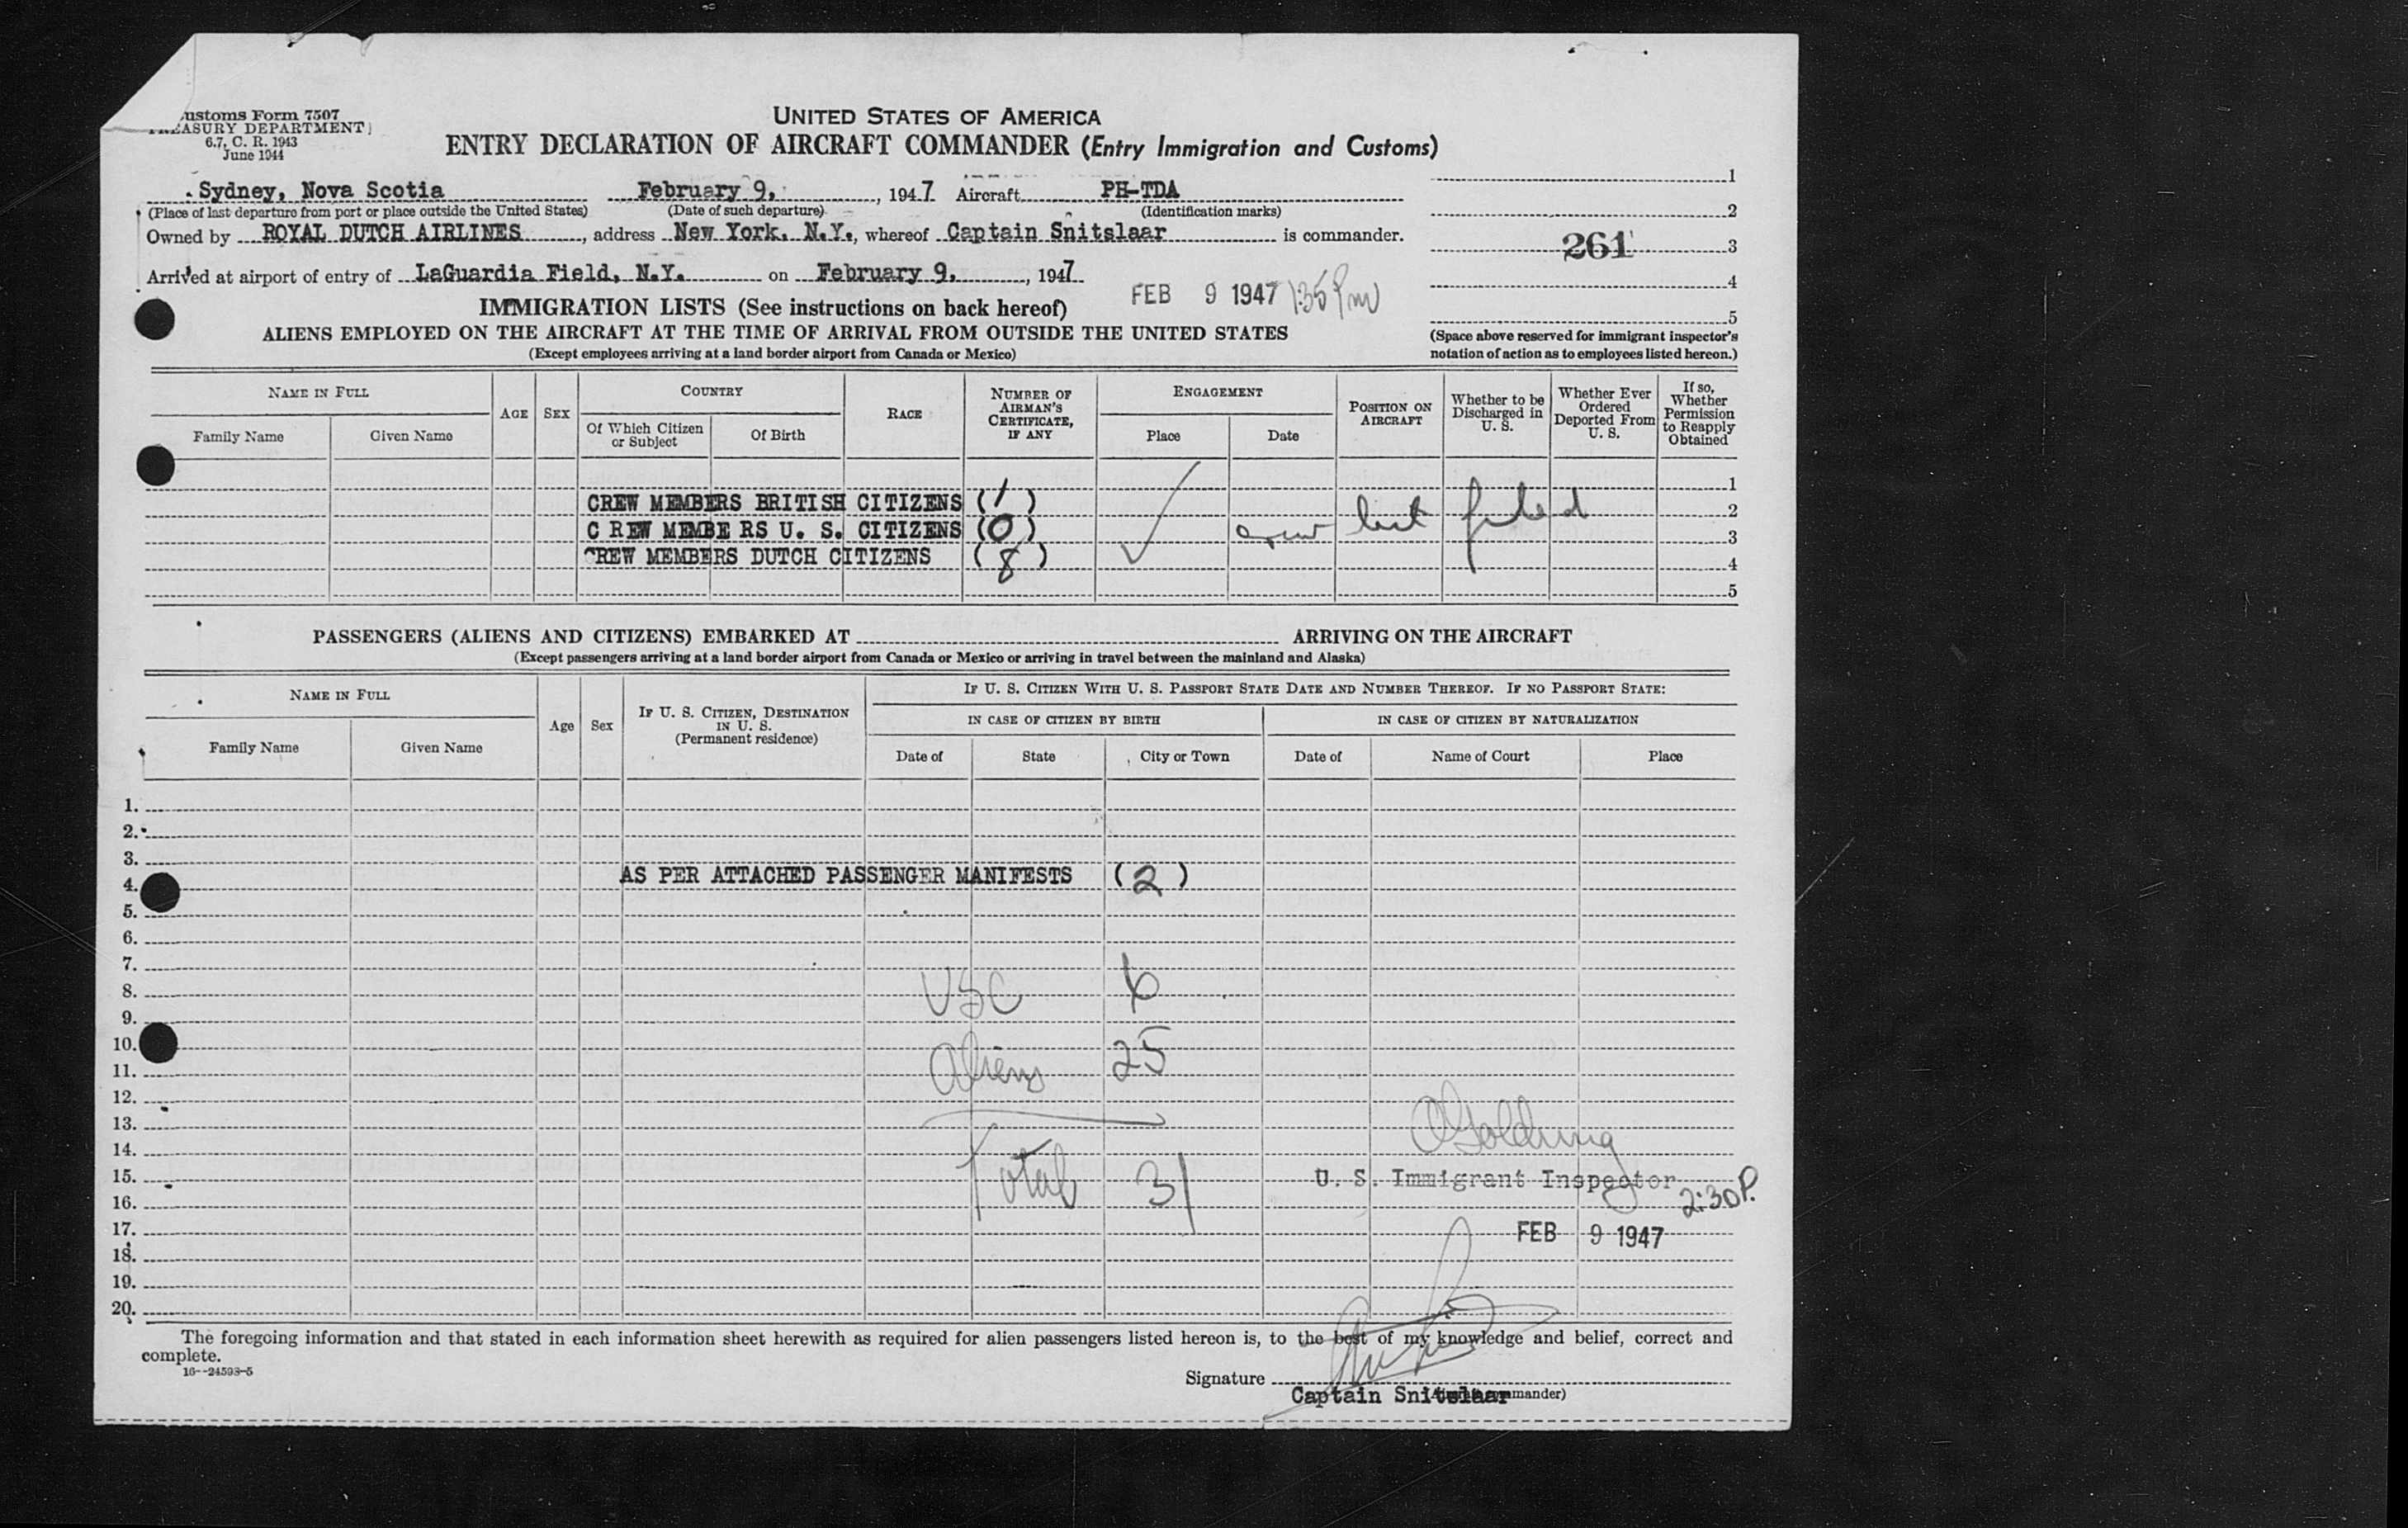 ustoms Form 7507
TREASURY DEPARTMENT
6.7, C. R. 1943
June 1944
UNITED STATES OF AMERICA
ENTRY DECLARATION OF AIRCRAFT COMMANDER (Entry Immigration and Customs)
Sydney, Nova Scotia February 9, , 1947 Aircraft PH-TDA
(Place of last departure from port or place outside the United States) (Date of such departure) (Identification marks)
Owned by ROYAL DUTCH AIRLINES, address New York, N.Y., whereof Captain Snitslaar is commander.
Arrived at airport of entry of LaGuardia Field, N.Y. on February 9, , 1947
FEB 9 1947 1:35 Pm
1
2
261 3
4
5
(Space above reserved for immigrant inspector's
notation of action as to employees listed hereon.)
IMMIGRATION LISTS (See instructions on back hereof)
ALIENS EMPLOYED ON THE AIRCRAFT AT THE TIME OF ARRIVAL FROM OUTSIDE THE UNITED STATES
(Except employees arriving at a land border airport from Canada or Mexico)
NAME IN FULL
Family Name Given Name
AGE SEX
COUNTRY
Of Which Citizen or Subject
Of Birth
RACE
NUMBER OF AIRMAN'S CERTIFICATE, IF ANY
ENGAGEMENT
Place Date
POSITION ON AIRCRAFT
Whether to be Discharged in U. S.
Whether Ever Ordered Deported From U. S.
If so, Whether Permission to Reapply Obtained
1
CREW MEMBERS BRITISH CITIZENS (1) 2
C REW MEMBE RS U. S. CITIZENS (0) crew list filed 3
CREW MEMBERS DUTCH CITIZENS (8) 4
5
PASSENGERS (ALIENS AND CITIZENS) EMBARKED AT ARRIVING ON THE AIRCRAFT
(Except passengers arriving at a land border airport from Canada or Mexico or arriving in travel between the mainland and Alaska)
NAME IN FULL
Family Name Given Name
Age Sex
IF U. S. CITIZEN, DESTINATION IN U. S.
(Permanent residence)
IF U. S. CITIZEN WITH U. S. PASSPORT STATE DATE AND NUMBER THEREOF. IF NO PASSPORT STATE:
IN CASE OF CITIZEN BY BIRTH IN CASE OF CITIZEN BY NATURALIZATION
Date of State City or Town Date of Name of Court Place
1.
2.
3.
AS PER ATTACHED PASSENGER MANIFESTS (2)
4.
5.
6.
7.
8. USC 6
9.
10.
11. Aliens 25
12.
13.
14. OGolding
15. Total 31 U. S. Immigrant Inspector
16. 2:30 P.
17. FEB 9 1947
18.
19.
20.
The foregoing information and that stated in each information sheet herewith as required for alien passengers listed hereon is, to the best of my knowledge and belief, correct and
complete.
16--24593-5
Signature
Captain Snitslaar mander)